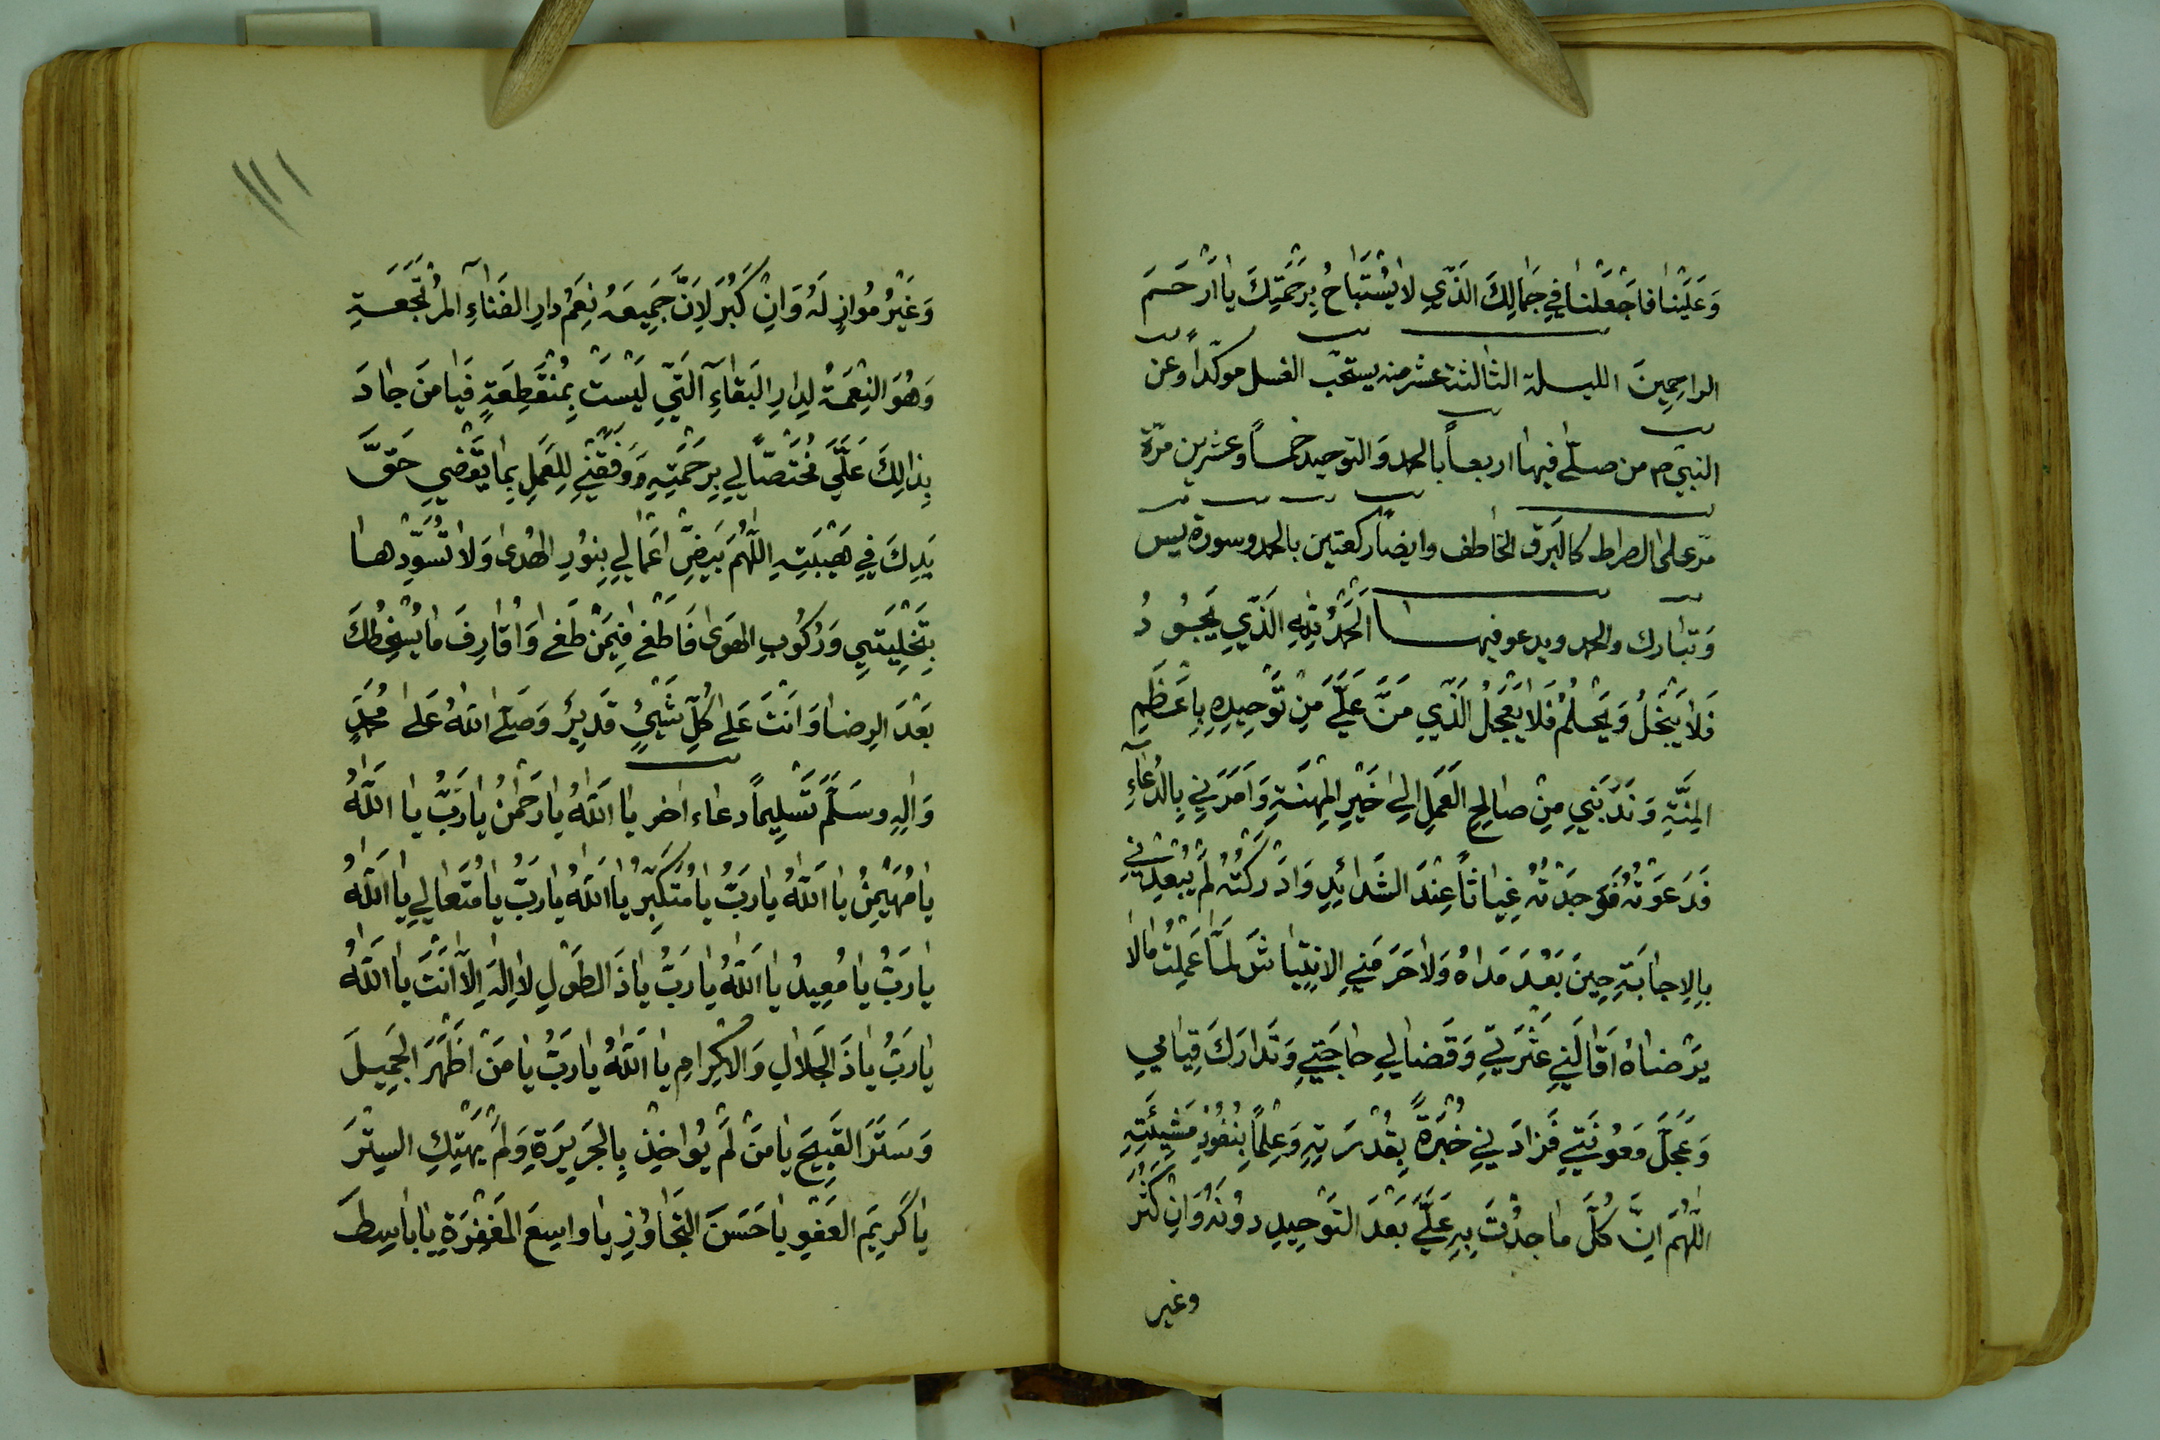 وَعَلَيْنَا فَاجْعَلْنَا فِي جَمَالِكَ الَّذِي لَا يُسْتَبَاحُ بِرَحْمَتِكَ يَا اَرْحَمَ
الرَاحِمِينَ الليلة الثالثة عشر منه يستحبّ الغسل موكّداً وعن
النبيّ ص من صلّى فيها اربعاً بالحمد وَ التوحيد خمساً وعشرين مرّة
مرّ على الصراط كالبَرق الخاطف وايضاً ركعتين بالحمد وسورة يس
وَتبارك والحمد ويدعو فيها اَلْحَمْدُ لِلّٰهِ الَّذِي يَجُودُ
فَلَا يَبْخَلُ وَيَحْلُمُ فَلَا يَعْجَلُ الَّذِي مَنَّ عَلَيَّ مِنْ تَوْحِيدِهِ بِاَعْظَمِ
المِنَّةِ وَنَدَبَنِي مِنْ صَالِحِ الْعَمَلِ اِلَى خَيْرِ المِهْنَةِ وَاَمَرَنِي بِالدُّعَآءِ
فَدَعَوْتُهُ فَوَجَدْتُهُ غِيَاثًا عِنْدَ الشَّدَائِدِ وَادْرَكْتُهُ لَمْ يُبْعِدْنِي
بِالاِجَابَةِ حِينَ بَعُدَ مَدَاهُ وَلَا حَرَمَنِي الاِنْتِيَاشَ لَمَّا عَمِلْتُ مَا لَا
يَرْضَاهُ اَقَالَنِي عَثْرَتِي وَقَضَا لِي حَاجَتِي وَتَدَارَكَ قِيَامِي
وَعَجَّلَ مَعُونَتِي فَزَادَنِي خُبْرَةً بِقُدْرَتِهِ وَعِلْماً بِنُفُوذِ مَشِيئَتِهِ
اللّٰهُمَّ اِنَّ كُلَّ مَا جُدْتَ بِهِ عَلَيَّ بَعْدَ التَوْحِيدِ دُونَهُ وَاِنْ كَثُرَ
وغير
١١١
وَغَيْرُ مُوَازٍ لَهُ وَانِ كَبُرَ لاَنَّ جَمِيعَهُ نِعَمُ دارِ الفَنَآءِ المُرْتَجَعَةِ
وَهُوَ النِعْمَةُ لِدَارِ البَقَآءِ الَّتِي لَيْسَتْ بِمُنْقَطِعَةٍ فَيَا مَنْ جَادَ
بِذَالِكَ عَلَيَّ مُخْتَصّاً لِي بِرَحْمَتِهِ وَوَفَّقَنِي لِلعَمَلِ بِمَا يَقْضِي حَقَّ
يَدِكَ فِي هَيْبَتِهِ اللّٰهُمَّ بَيِّضْ اَعْمَالِي بِنُورِ الهُدىٰ وَلَا تُسَوِّدْهَا
بِتَخْلِيَتِي وَرُكُوبِ الهَوىٰ فَاَطْغىٰ فِيمَنْ طَغىٰ وَاُقَارِفَ مَا يُسْخِطُكَ
بَعْدَ الرِضَا وَانْتَ عَلىٰ كُلِّ شَيْءٍ قَدِيرٌ وَصَلَّى اللهُ عَلىٰ مُحَمَّدٍ
وَالِهِ وسَلَّمَ تَسْلِيماً دعاء اخر يَا اَللّٰهُ يَا رَحْمٰنُ يَا رَبُّ يَا اَللّٰهُ
يَا مُهَيْمِنُ يَا اَللّٰهُ يَا رَبُّ يَا مُتَكَبِّرُ يَا اَللّٰهُ يَا رَبُّ يَا مُتَعَالِي يَا اَللّٰهُ
يَا رَبُّ يَا مُعِيدُ يَا اَللّٰهُ يَا رَبُّ يَا ذَ الطَوْلِ لَا اِلٰهَ اِلَّا اَنْتَ يَا اَللّٰهُ
يَا رَبُّ يَا ذَ الجَلَالِ وَالاِكْرَامِ يَا اَللّٰهُ يَا رَبُّ يَا مَنْ اَظْهَرَ الجَمِيلَ
وَسَتَرَ القَبِيحَ يَا مَنْ لَمْ يُواخِذْ بِالجَرِيرَةِ وَلَمْ يَهْتِكِ السِتْرَ
يَا كَرِيمَ العَفْوِ يَا حَسَنَ التَجَاوُزِ يَا واسِعَ المَغْفِرَةِ يَا بَاسِطَ